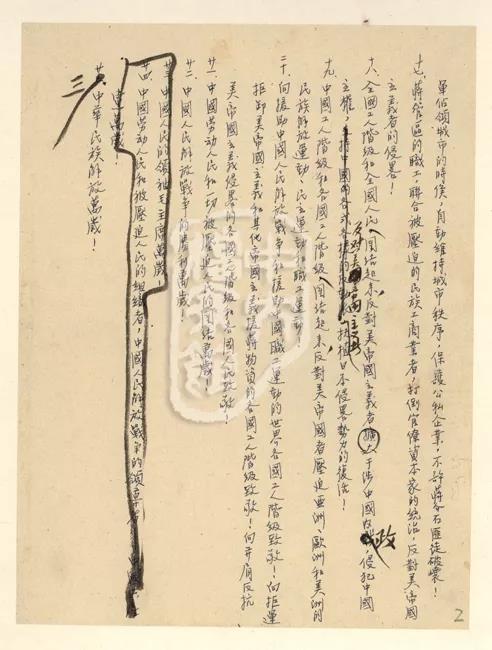 軍佔領城市的時侯，自動維持城市秩序，保護公私企業，不許蔣介石匪徒破壞！
十七、蔣管區的職工，聯合被壓迫的民族工商業者，打倒官僚資本家的統治，反對美帝國
主義者的侵畧！
十八、全國工人階級和全國人民團結起來，反對美帝國主義者擴大干涉中國內政，侵犯中國
主權，反對美帝國主義扶植日本侵畧勢力的復活！
十九、中國工人階級和各國工人階級團結起來，反對美帝國者壓迫亞洲、歐洲和美洲的
民族解放運動、民主運動和職工運動！
二十、向援助中國人民解放戰爭和援助中國職工運動的世界各國工人階級致敬！向拒運
拒卸美帝國主義和其他帝國主義援蔣物資的各國工人階級致敬！向并肩反抗
美帝國主義侵畧的各國工人階級和各國人民致敬！
廿一、中國勞動人民和一切被壓迫人民的團結萬歲！
廿二、中國人民解放戰爭的勝利萬歲
廿三、中國人民的領袖毛主席萬歲
廿四、中國勞動人民和被壓迫人民的組織者，中國人民解放戰爭的領導者
萬歲！
中華民族解放萬歲！
三
2